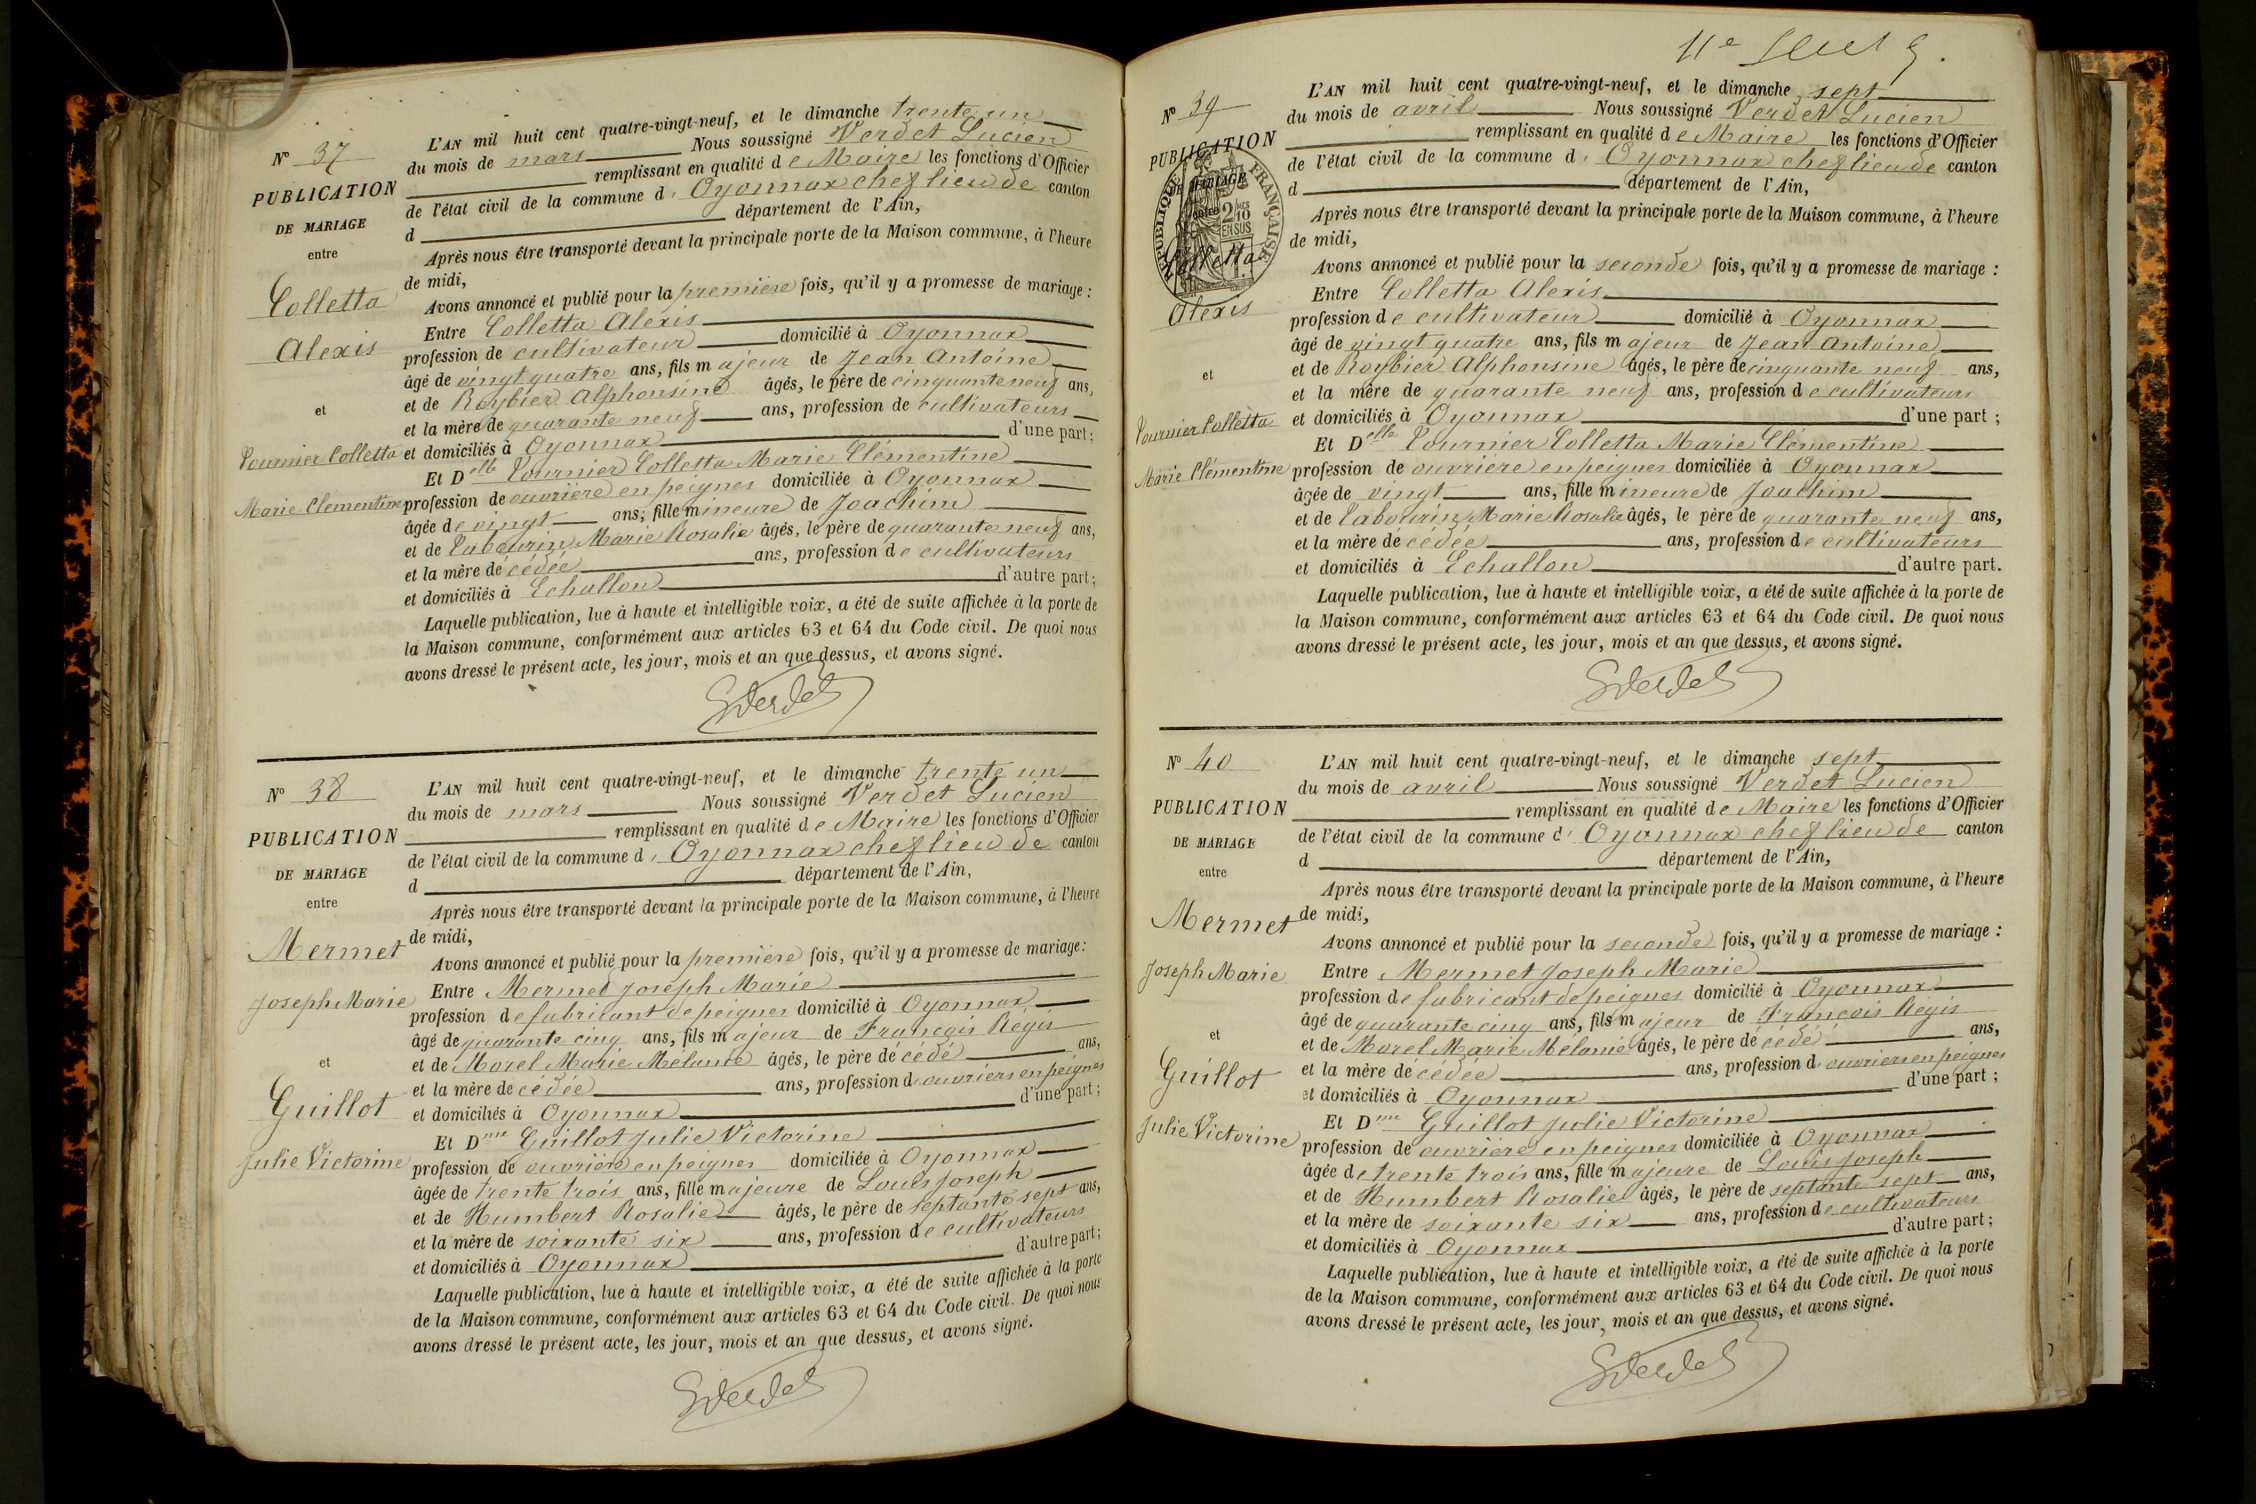 N° 37
PUBLICATION
DE MARIAGE
entre
Colletta
Alexis
et
Tournier Colletta
Marie Clémentine
L'AN mil huit cent quatre-vingt-neuf, et le dimanche trente un
du mois de mars Nous soussigné Verdet Lucien
remplissant en qualité de Maire les fonctions d'Officier
de l'état civil de la commune d' Oyonnax chef lieu de canton
d département de l'Ain,
Après nous être transporté devant la principale porte de la Maison commune, à l'heure
de midi,
Avons annoncé et publié pour la première fois, qu'il y a promesse de mariage :
Entre Colletta Alexis
profession de cultivateur domicilié à Oyonnax
âgé de vingt quatre ans, fils majeur de Jean Antoine
et de Roybier Alphonsine âgés, le père de cinquante neuf ans,
et la mère de quarante neuf ans, profession de cultivateurs
et domiciliés à Oyonnax d'une part ;
Et Delle Tournier Colletta Marie Clémentine
profession de ouvrière en peignes domiciliée à Oyonnax
âgée de vingt ans, fille mineure de Joachim
et de Tabourin Marie Rosalie âgés, le père de quarante neuf ans,
et la mère décédée ans, profession de cultivateurs
et domiciliés à Echallon d'autre part ;
Laquelle publication, lue à haute et intelligible voix, a été de suite affichée à la porte de
la Maison commune, conformément aux articles 63 et 64 du Code civil. De quoi nous
avons dressé le présent acte, les jour, mois et an que dessus, et avons signé.
N° 38
PUBLICATION
DE MARIAGE
entre
Mermet
Joseph Marie
et
Guillot
Julie Victorine
L'AN mil huit cent quatre-vingt-neuf, et le dimanche trente un
du mois de mars Nous soussigné Verdet Lucien
remplissant en qualité de Maire les fonctions d'Officier
de l'état civil de la commune d' Oyonnax chef lieu de canton
d département de l'Ain,
Après nous être transporté devant la principale porte de la Maison commune, à l'heure
de midi,
Avons annoncé et publié pour la première fois, qu'il y a promesse de mariage :
Entre Mermet Joseph Marie
profession de fabricant de peignes domicilié à Oyonnax
âgé de quarante cinq ans, fils majeur de François Régis
et de Morel Marie Mélanie âgés, le père décédé ans,
et la mère décédée ans, profession d'ouvriers en peignes
et domiciliés à Oyonnax d'une part ;
Et Dme Guillot Julie Victorine
profession de ouvrière en peignes domiciliée à Oyonnax
âgée de trente trois ans, fille majeure de Louis Joseph
et de Humbert Rosalie âgés, le père de septante sept ans,
et la mère de soixante six ans, profession de cultivateurs
et domiciliés à Oyonnax d'autre part ;
Laquelle publication, lue à haute et intelligible voix, a été de suite affichée à la porte
de la Maison commune, conformément aux articles 63 et 64 du Code civil. De quoi nous
avons dressé le présent acte, les jour, mois et an que dessus, et avons signé.
11e
N° 39
PUBLICATION
DE MARIAGE
entre
RÉPUBLIQUE FRANÇAISE
2/10
EN SUS
Colletta
Alexis
et
Tournier Colletta
Marie Clémentine
L'AN mil huit cent quatre-vingt-neuf, et le dimanche sept
du mois de avril Nous soussigné Verdet Lucien
remplissant en qualité de Maire les fonctions d'Officier
de l'état civil de la commune d' Oyonnax chef lieu de canton
d département de l'Ain,
Après nous être transporté devant la principale porte de la Maison commune, à l'heure
de midi,
Avons annoncé et publié pour la seconde fois, qu'il y a promesse de mariage :
Entre Colletta Alexis
profession de cultivateur domicilié à Oyonnax
âgé de vingt quatre ans, fils majeur de Jean Antoine
et de Roybier Alphonsine âgés, le père de cinquante neuf ans,
et la mère de quarante neuf ans, profession de cultivateurs
et domiciliés à Oyonnax d'une part ;
Et Delle Tournier Colletta Marie Clémentine
profession de ouvrière en peignes domiciliée à Oyonnax
âgée de vingt ans, fille mineure de Joachim
et de Tabourin Marie Rosalie âgés, le père de quarante neuf ans,
et la mère décédée ans, profession de cultivateurs
et domiciliés à Echallon d'autre part.
Laquelle publication, lue à haute et intelligible voix, a été de suite affichée à la porte de
la Maison commune, conformément aux articles 63 et 64 du Code civil. De quoi nous
avons dressé le présent acte, les jour, mois et an que dessus, et avons signé.
N° 40
PUBLICATION
DE MARIAGE
entre
Mermet
Joseph Marie
et
Guillot
Julie Victorine
L'AN mil huit cent quatre-vingt-neuf, et le dimanche sept
du mois de avril Nous soussigné Verdet Lucien
remplissant en qualité de Maire les fonctions d'Officier
de l'état civil de la commune d' Oyonnax chef lieu de canton
d département de l'Ain,
Après nous être transporté devant la principale porte de la Maison commune, à l'heure
de midi,
Avons annoncé et publié pour la seconde fois, qu'il y a promesse de mariage :
Entre Mermet Joseph Marie
profession de fabricant de peignes domicilié à Oyonnax
âgé de quarante cinq ans, fils majeur de François Régis
et de Morel Marie Mélanie âgés, le père décédé ans,
et la mère décédée ans, profession d'ouvriers en peignes
et domiciliés à Oyonnax d'une part ;
Et Dme Guillot Julie Victorine
profession de ouvrière en peignes domiciliée à Oyonnax
âgée de trente trois ans, fille majeure de Louis Joseph
et de Humbert Rosalie âgés, le père de septante sept ans,
et la mère de soixante six ans, profession de cultivateurs
et domiciliés à Oyonnax d'autre part ;
Laquelle publication, lue à haute et intelligible voix, a été de suite affichée à la porte
de la Maison commune, conformément aux articles 63 et 64 du Code civil. De quoi nous
avons dressé le présent acte, les jour, mois et an que dessus, et avons signé.